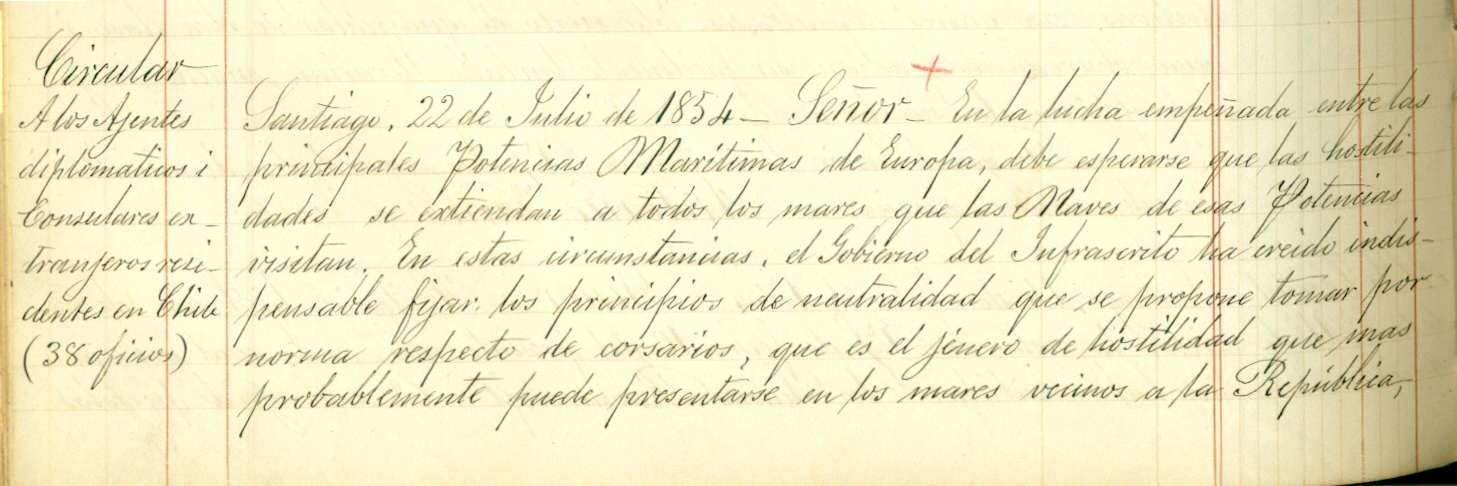 Circular
A los Ajentes
diplomaticos i
Consulares ex-
tranjeros resi-
dentes en Chile
(38 oficios)
Santiago, 22 de Julio de 1854 - Señor - En la lucha empeñada entre las
principales Potencias Marítimas de Europa, debe esperarse que las hostili-
dades se extiendan a todos los mares que las Naves de esas Potencias
visitan. En estas circunstancias, el Gobierno del Infrascrito ha creido indis-
pensable fijar los principios de neutralidad que se propone tomar por
norma respecto de corsarios, que es el jénero de hostilidad que mas
probablemente puede presentarse en los mares vecinos a la República,